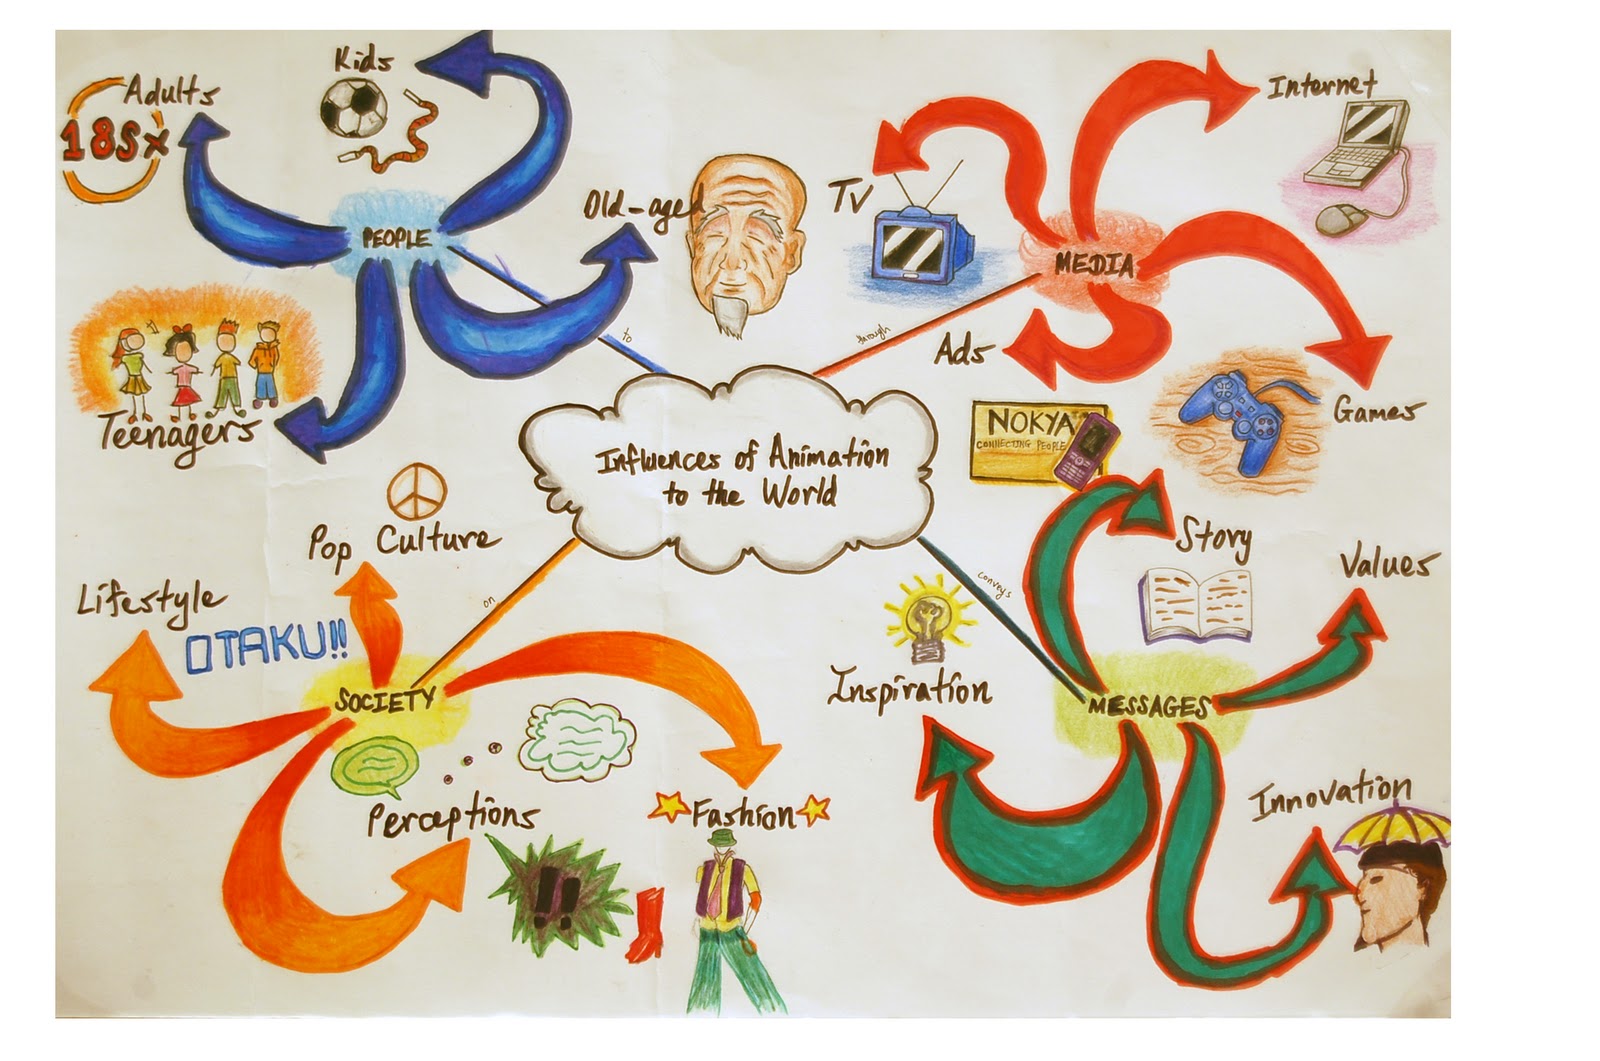 Adults
18Sx
Kids
Old-aged
PEOPLE
Teenagers
to
TV
Internet
MEDIA
through
Ads
Games
NOKYA
CONNECTING PEOPLE
Influences of Animation
to the World
Pop Culture
Lifestyle
OTAKU!!
on
SOCIETY
Perceptions
Fashion
!!
conveys
Story
Values
Inspiration
MESSAGES
Innovation